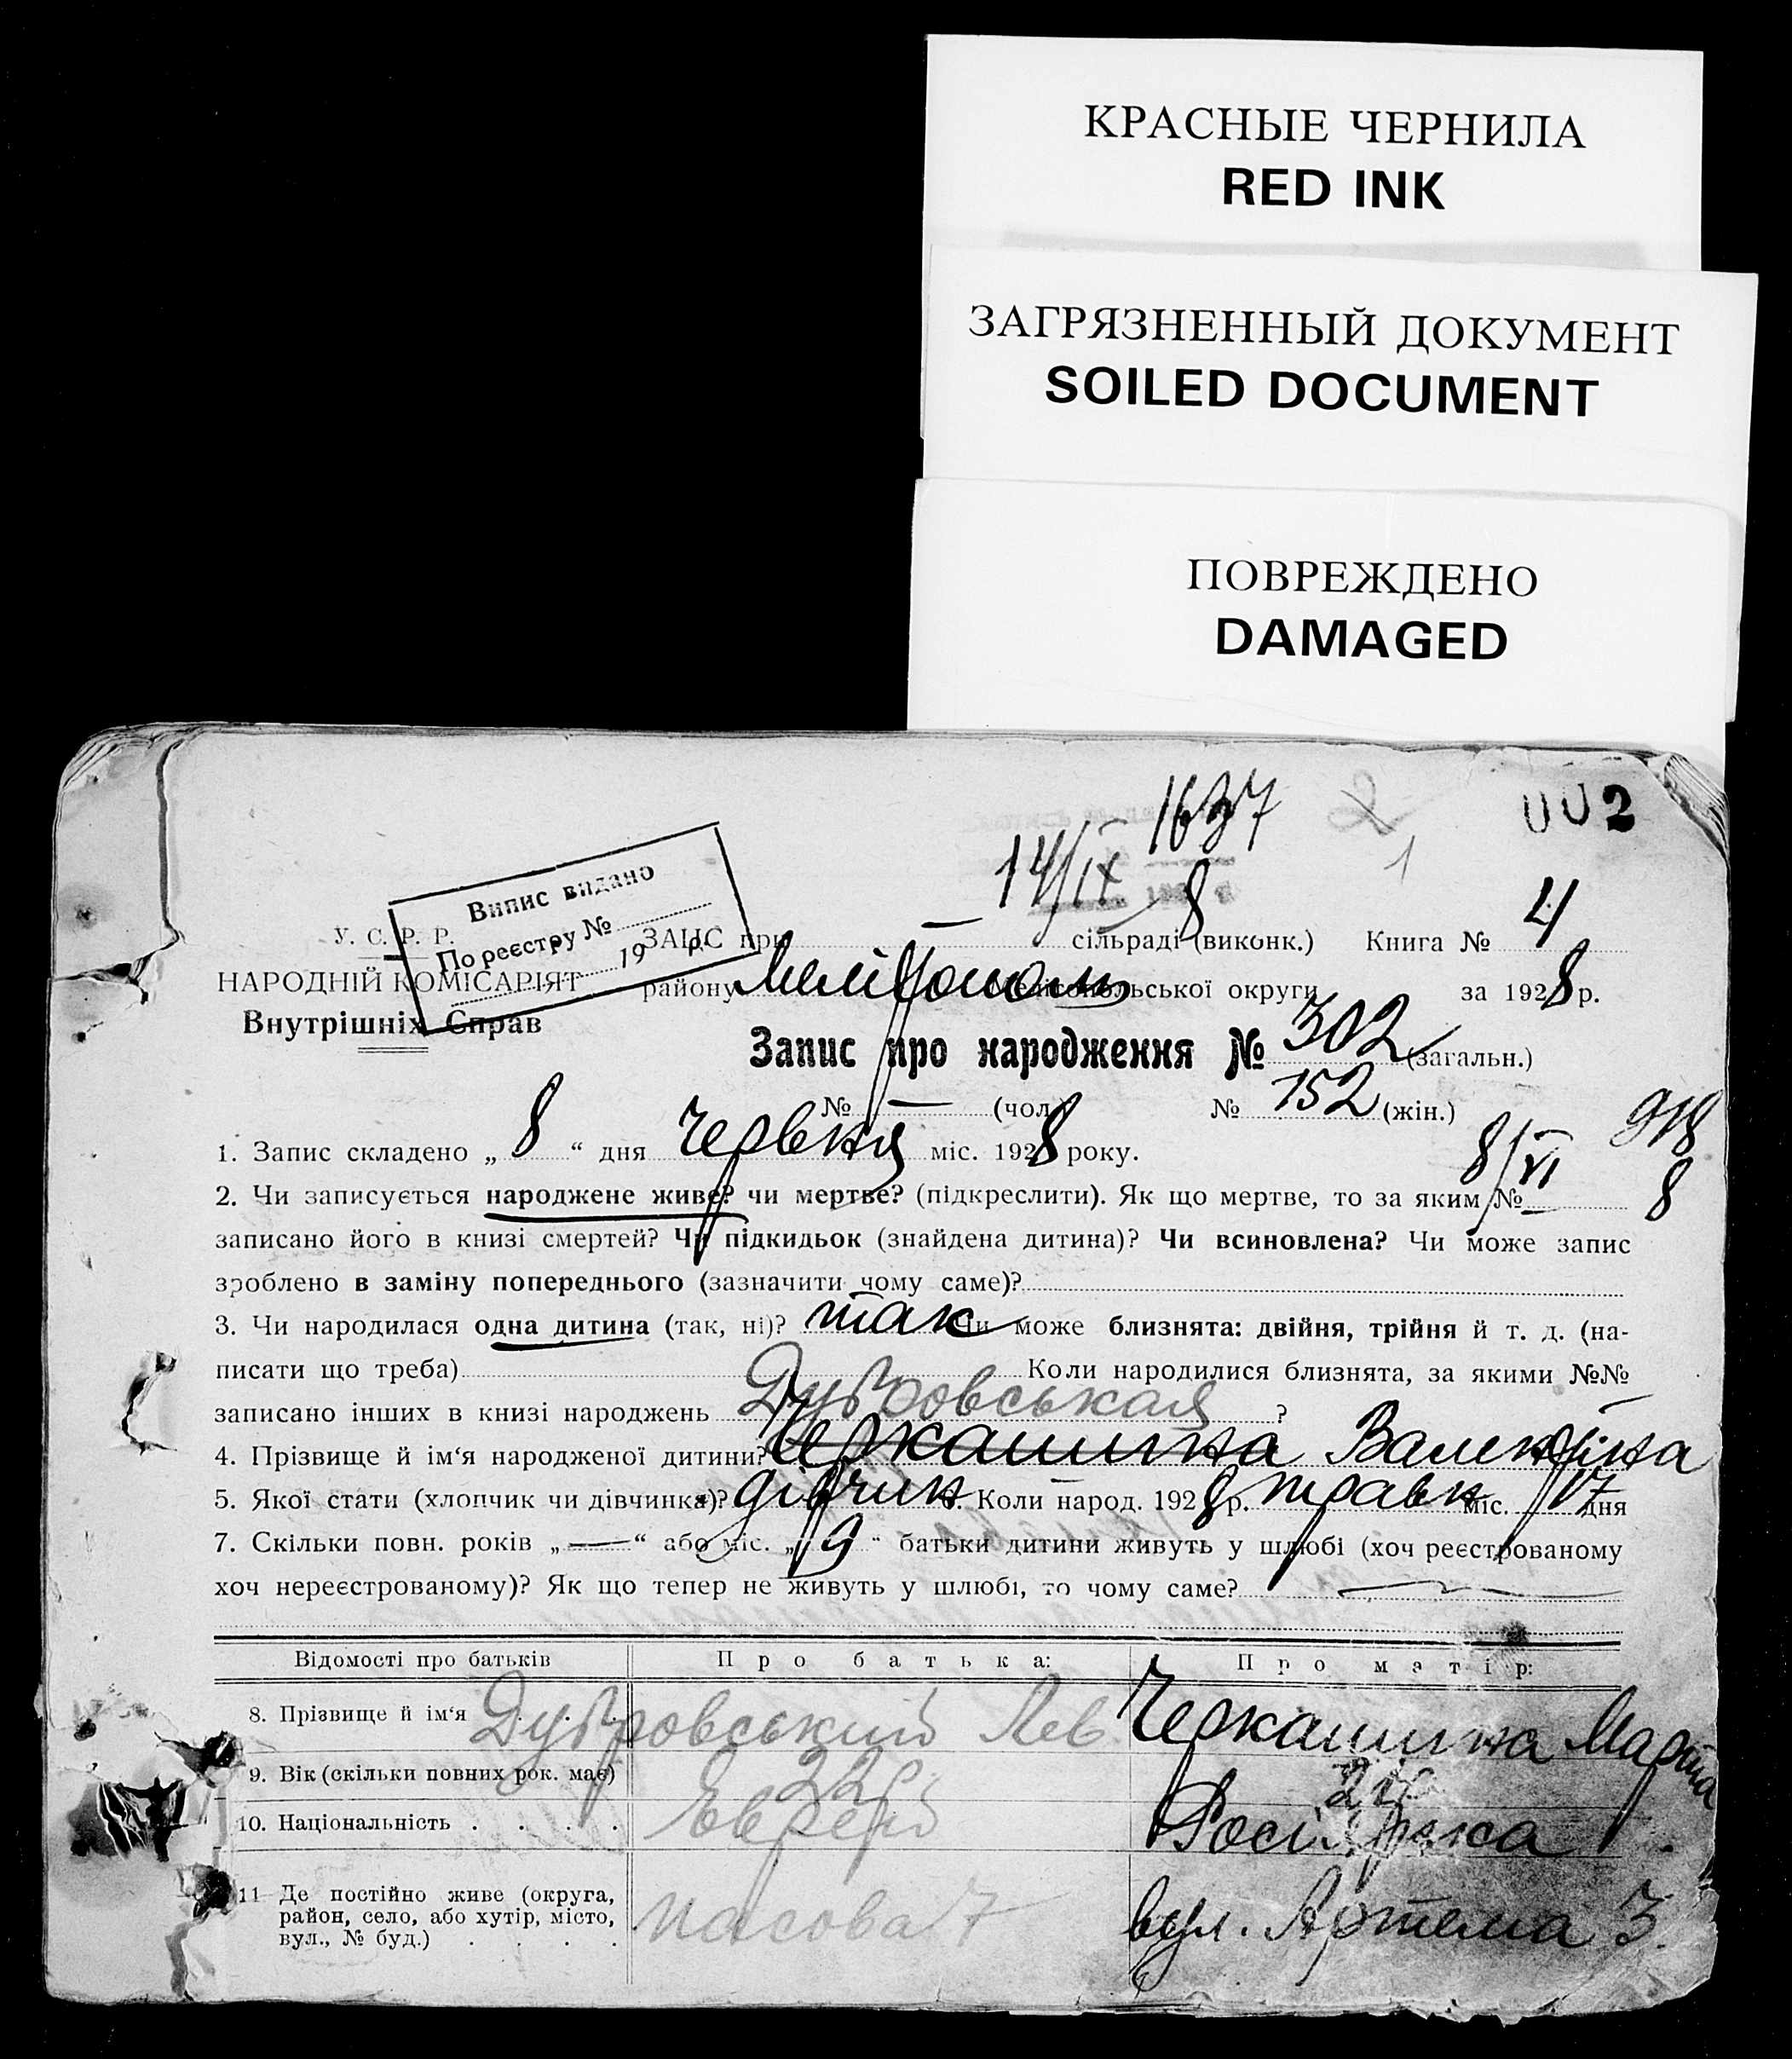 КРАСНЫЕ ЧЕРНИЛА
RED INK
ЗАГРЯЗНЕННЫЙ ДОКУМЕНТ
SOILED DOCUMENT
ПОВРЕЖДЕНО
DAMAGED
1637 2 002
14/IX 8 1
Випис видано
По реєстру №
19 р.
У. С. Р. Р.
НАРОДНІЙ КОМІСАРІЯТ
Внутрішніх Справ
ЗАГС при — сільраді (виконк.) Книга № 4
району Мелітополь Мелітопольської округи за 1928 р.
Запис про народження № 302 (загальн.)
№ — (чол.) № 152 (жін.)
1. Запис складено „ 8 “ дня червня міс. 1928 року. 8/VI 918
8
2. Чи записується народжене живе? чи мертве? (підкреслити). Як що мертве, то за яким № —
записано його в книзі смертей? Чи підкидьок (знайдена дитина)? Чи всиновлена? Чи може запис
зроблено в заміну попереднього (зазначити чому саме)?
3. Чи народилася одна дитина (так, ні)? так Чи може близнята: двійня, трійня й т. д. (на-
писати що треба) Коли народилися близнята, за якими №№
записано інших в книзі народжень Дубровськая ?
4. Прізвище й ім‘я народженої дитини? Черкашина Валентіна
5. Якої стати (хлопчик чи дівчинка)? дівчин. Коли народ. 1928 р. травн міс. 17 дня
7. Скільки повн. років „ — “ або міс. „ 9 “ батьки дитини живуть у шлюбі (хоч реєстрованому
хоч нереєстрованому)? Як що тепер не живуть у шлюбі, то чому саме?
Відомості про батьків Про батька: Про матір:
8. Прізвище й ім‘я Дубровський Лев Черкашина Марта
9. Вік (скільки повних рок. має) 22
10. Національність Еврей Росіянка
11 Де постійно живе (округа,
район, село, або хутір, місто,
вул., № буд.) 7 вул. Артема 3.